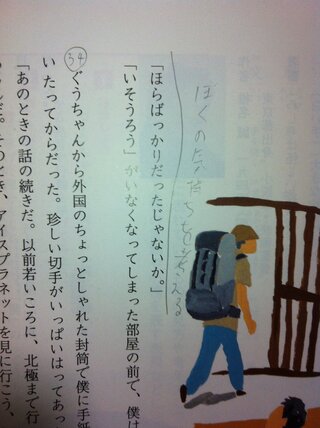 ぼくの気持ちを考える
「ほらばっかりだったじゃないか。」
「いそうろう」がいなくなってしまった部屋の前で、僕は
34 ぐうちゃんから外国のちょっとしゃれた封筒で僕に手紙
いたってからだった。珍しい切手がいっぱいはってあっ
「あのときの話の続きだ。以前若いころに、北極まで行
だ。そのとき、アイスプラネットを見に行こう、